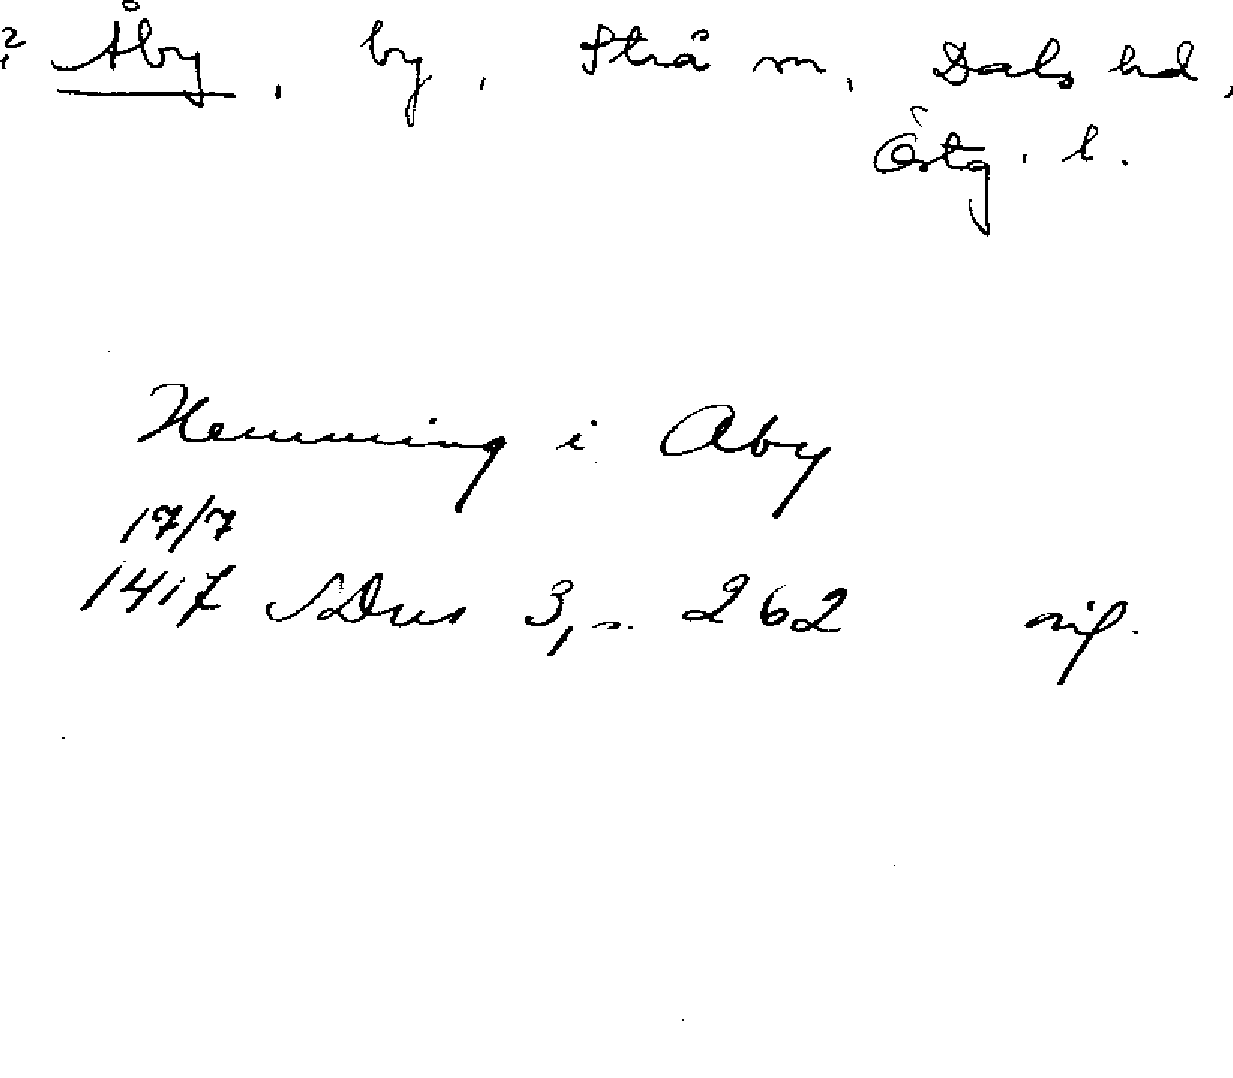 ? Åby, by, Strå sn, Dals hd,
Östg. l.
Hemming i Aby
17/7
1417 SDns 3, s. 262 sig.